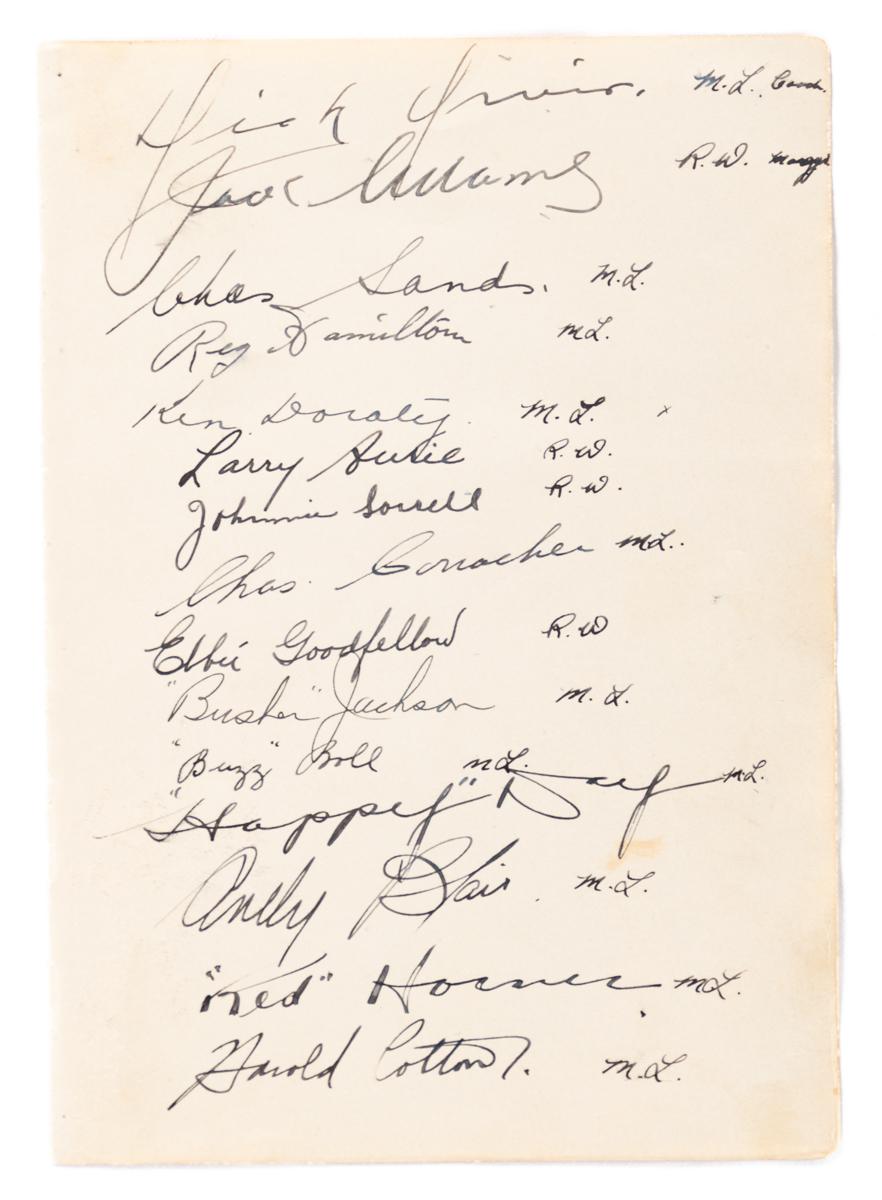 Dick Irvin. M.L. Coach.
Jack Adams R.W. Mangr
Chas Sands. M.L.
Reg Hamilton M.L.
Ken Doraty. M.L. x
Larry Aurie R.W.
Johnnie Sorrell R.W.
Chas. Conacher M.L.
Ebbie Goodfellow R.W
"Busher" Jackson M.L.
"Buzz" Boll M.L.
"Happy" Day M.L.
Andy Blair. M.L.
"Red" Horner M.L.
Harold Cotton. M.L.